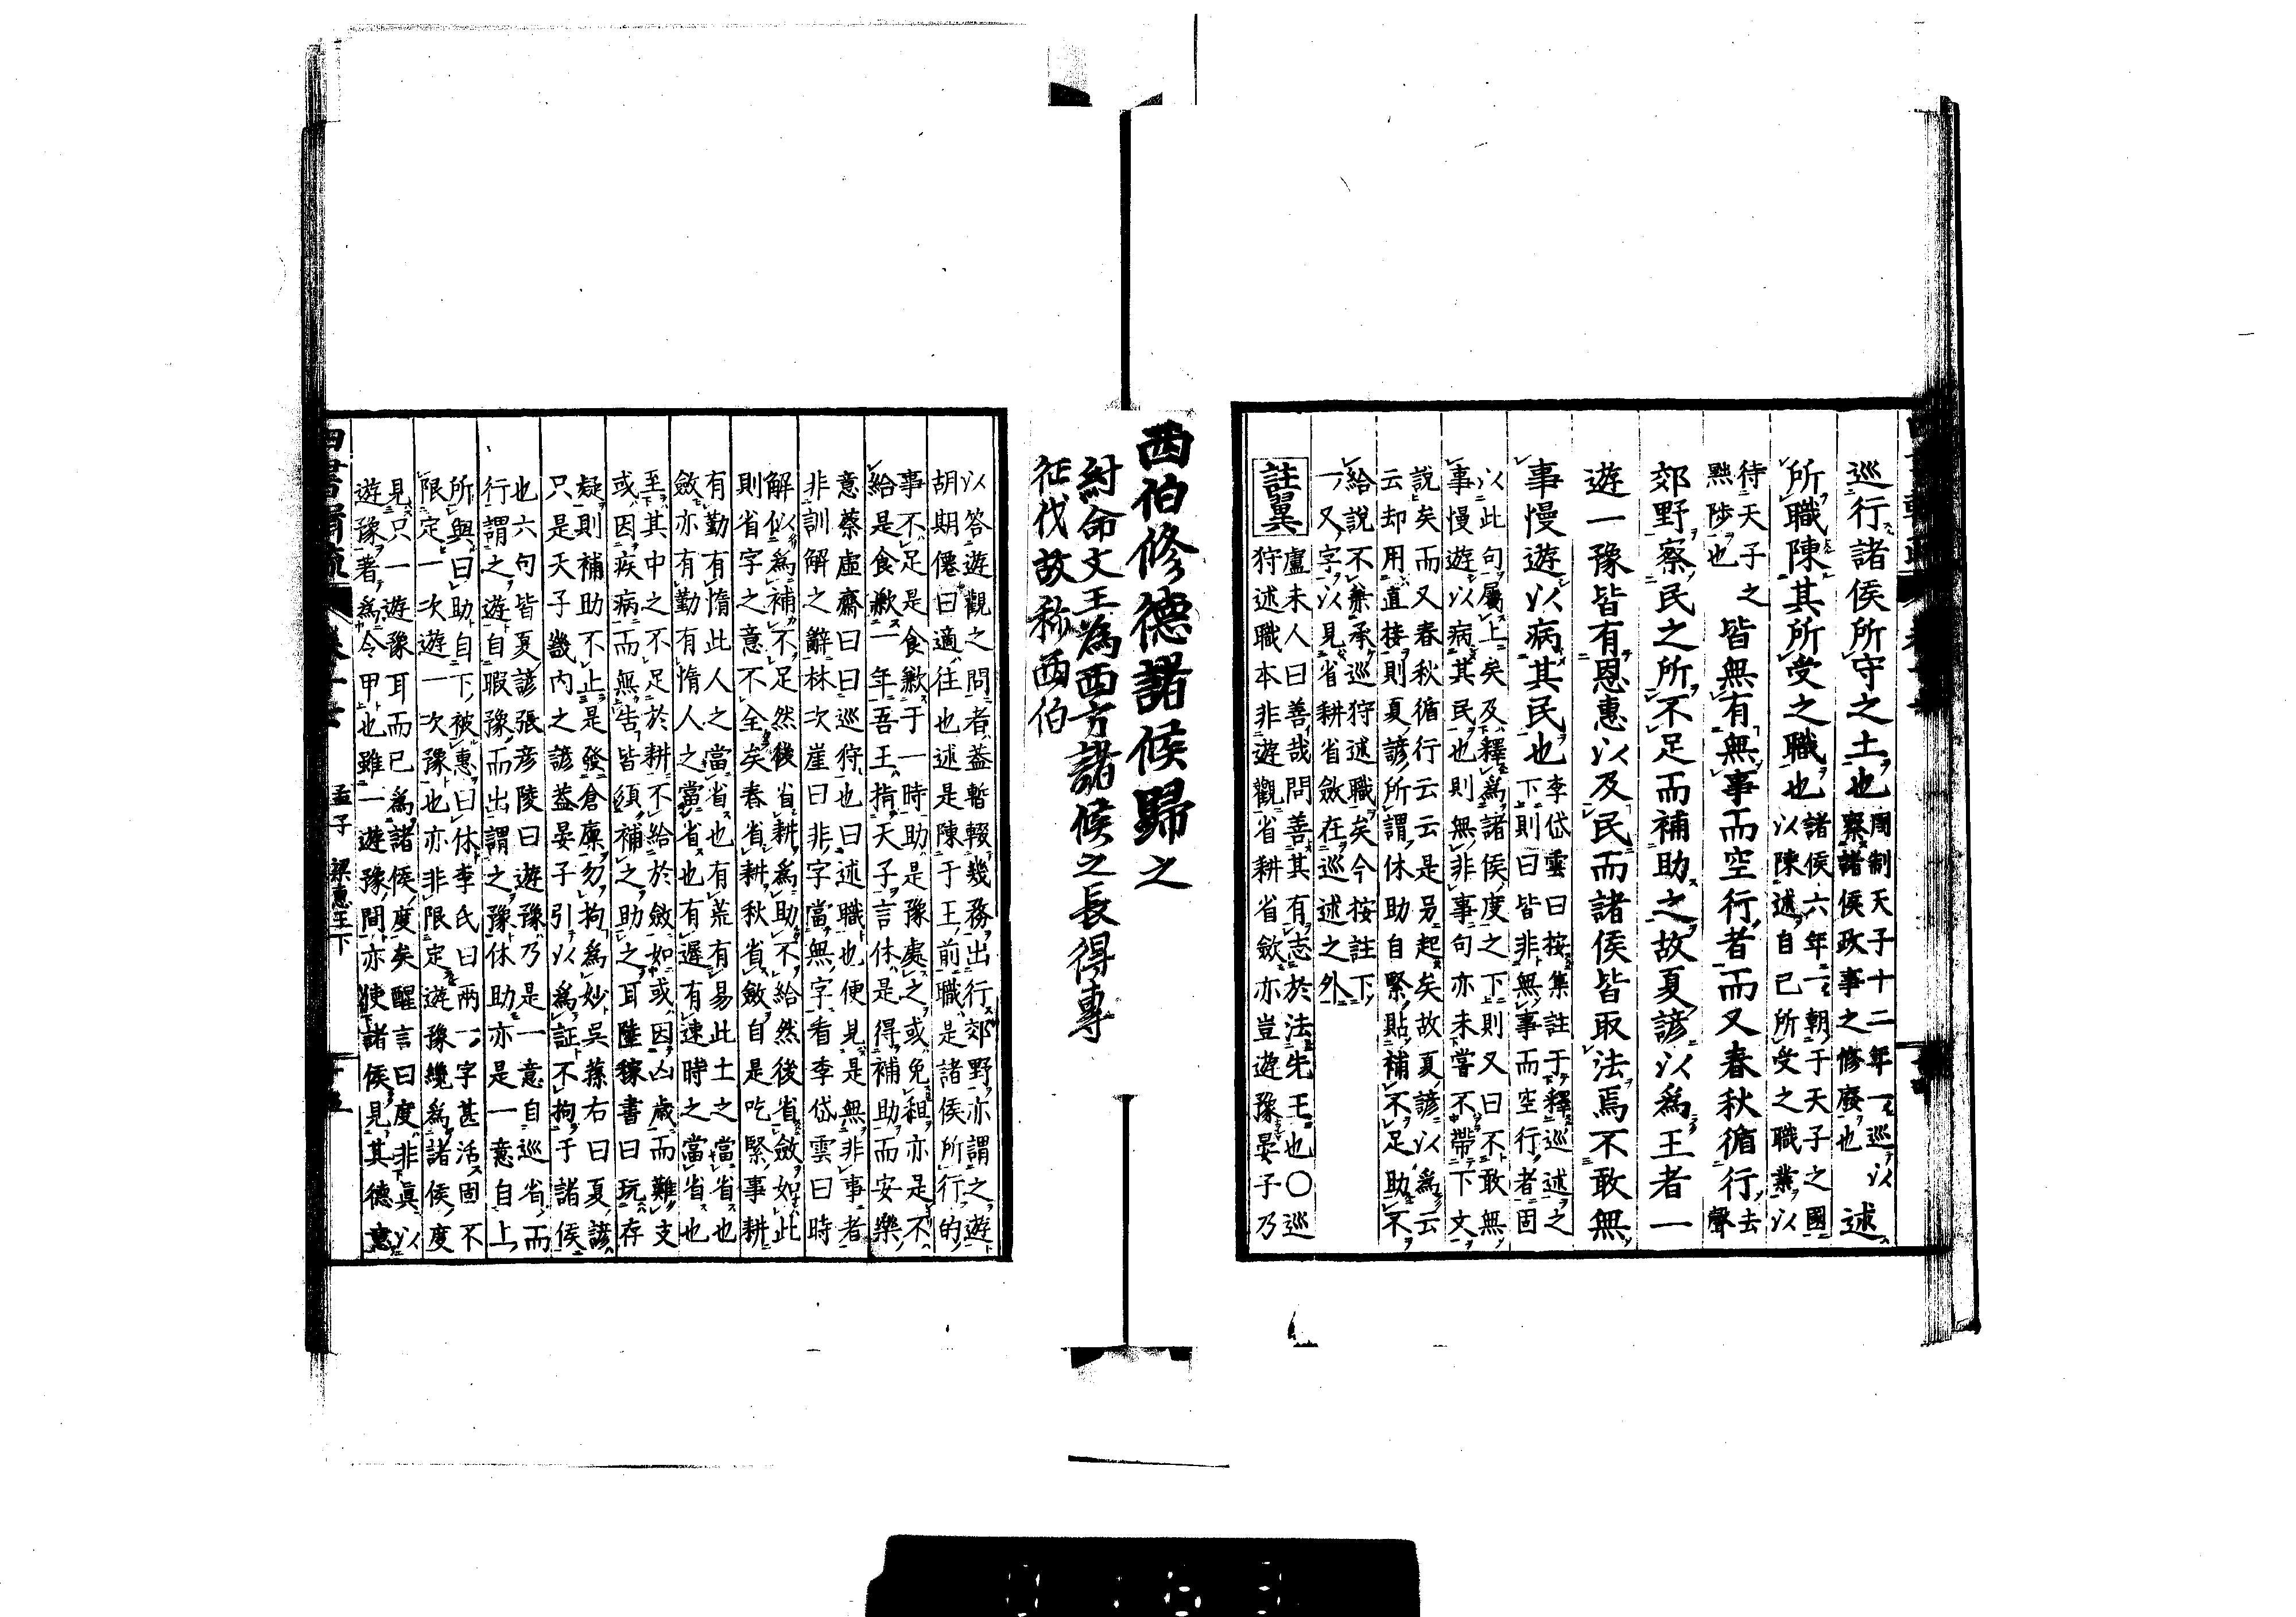 巡行諸侯所守之土也周制天子十二年一巡以察諸侯政事之修廢也述
所職陳其所受之職也諸侯六年一朝于天子之國以陳述自己所受之職業以
待天子之黜陟也皆無有無事而空行者而又春秋循行去聲
郊野察民之所不足而補助之故夏諺以爲王者一
遊一豫皆有恩惠以及民而諸侯皆取法焉不敢無
事慢遊以病其民也李岱雲曰按集註于釋巡述之下則曰皆非無事而空行者固
以此句屬上矣及釋爲諸侯度之下則又曰不敢無
事慢遊以病其民也則無非事句亦未嘗不帶下文
說矣而又春秋循行云云是另起矣故夏諺以爲云
云却用直接則夏諺所謂休助自緊貼補不足助不
給說不兼承巡狩述職矣今按註下
一又字以見省耕省斂在巡述之外
註翼
盧未人曰善哉問善其有志於法先王也〇巡
狩述職本非遊觀省耕省斂亦豈遊豫晏子乃
西伯修德諸候歸之
紂命文王為西方諸候之長得專
征伐故称西伯
以答遊觀之問者蓋暫輟幾務出行郊野亦謂之遊
胡期僊曰適往也述是陳于王前職是諸侯所行的
事不足是食歉于一時助是豫處之或免租亦是不
給是食歉一年吾王指天子言休是得補助而安樂
意蔡虛齋曰曰巡狩也曰述職也便見是無非事者
非訓解之辭林次崖曰非字當無字看李岱雲曰時
解似爲補不足然後省耕爲助不給然後省斂如此
則省字之意不全矣春省耕秋省斂自是吃緊事耕
有勤有惰此人之當省也有荒有易此土之當省也
斂亦有勤有惰人之當省也有遲有速時之當省也
至其中之不足於耕不給於斂如或因凶歲而難支
或因疾病而無告皆須補之助之耳陸稼書曰玩存
疑則補助不止是發倉廩勿拘爲妙吳蓀右曰夏諺
只是天子畿內之諺蓋晏子引以爲証不拘于諸侯
也六句皆夏諺張彦陵曰遊豫乃是一意自巡省而
行謂之遊自暇豫而出謂之豫休助亦是一意自上
所與曰助自下被惠曰休李氏曰兩一字甚活固不
限定一次遊一次豫也亦非限定遊豫纔爲諸侯度
見只一遊豫耳而已爲諸侯度矣醒言曰度非眞以
遊豫著爲令甲也雖一遊豫間亦使諸侯見其德意
孟子 梁惠王下